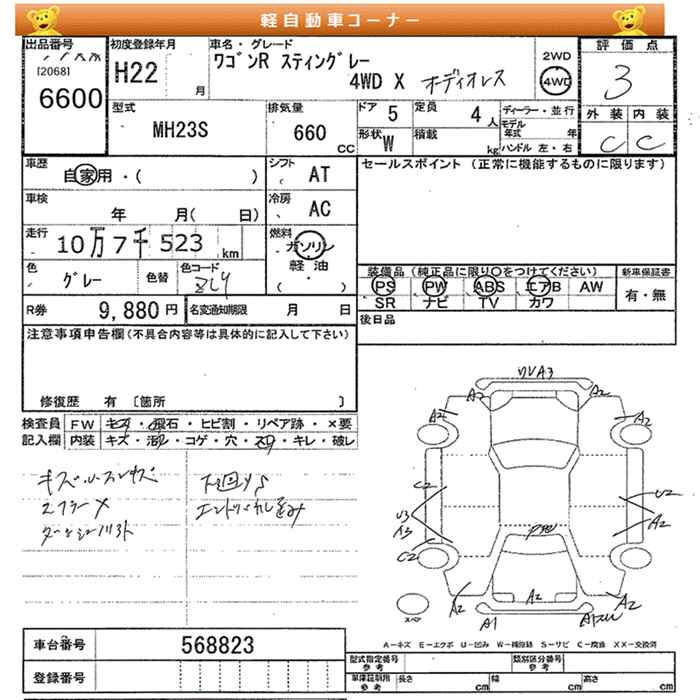 軽自動車コーナー
出品番号
[2068]
6600
初度登録年月
H22 月
車名・グレード
ワゴンR スティングレー
4WD X オーディオレス
2WD
4WD
評価点
3
外装 内装
C C
型式
MH23S
排気量
660 CC
ドア 5
定員 4 人
形状 W
積載 kg
ディーラー・並行
モデル年式 年
ハンドル 左・右
車歴
自家用・( )
シフト AT
セールスポイント (正常に機能するものに限ります)
車検
年 月( 日)
冷房 AC
走行
10万7千523 km
燃料
ガソリン
軽油
( ・ )
色 グレー
色替
色コード ZLY
装備品(純正品に限り○をつけてください)
PS PW ABS エアB AW
SR ナビ TV カワ
新車保証書
有・無
R券 9,880円
名変通知期限 月 日
後日品
注意事項申告欄(不具合内容等は具体的に記入して下さい)
修復歴 有 〔箇所 〕
検査員記入欄
FW キズ・飛石・ヒビ割・リペア跡・×要
内装 キズ・汚れ・コゲ・穴・スレ・キレ・破レ
下回りS
車台番号 568823
登録番号
UVA3
A2 A2
A2 A2
C2 U2
U3
A3 A2
C2
A2 A2 A2
A1
スペア
A-キズ E-エクボ U-凹み W-補修跡 S-サビ C-腐食 XX-交換済
型式指定番号 参考
類別区分番号 参考
車庫証明用 参考
長さ cm 幅 cm 高さ cm